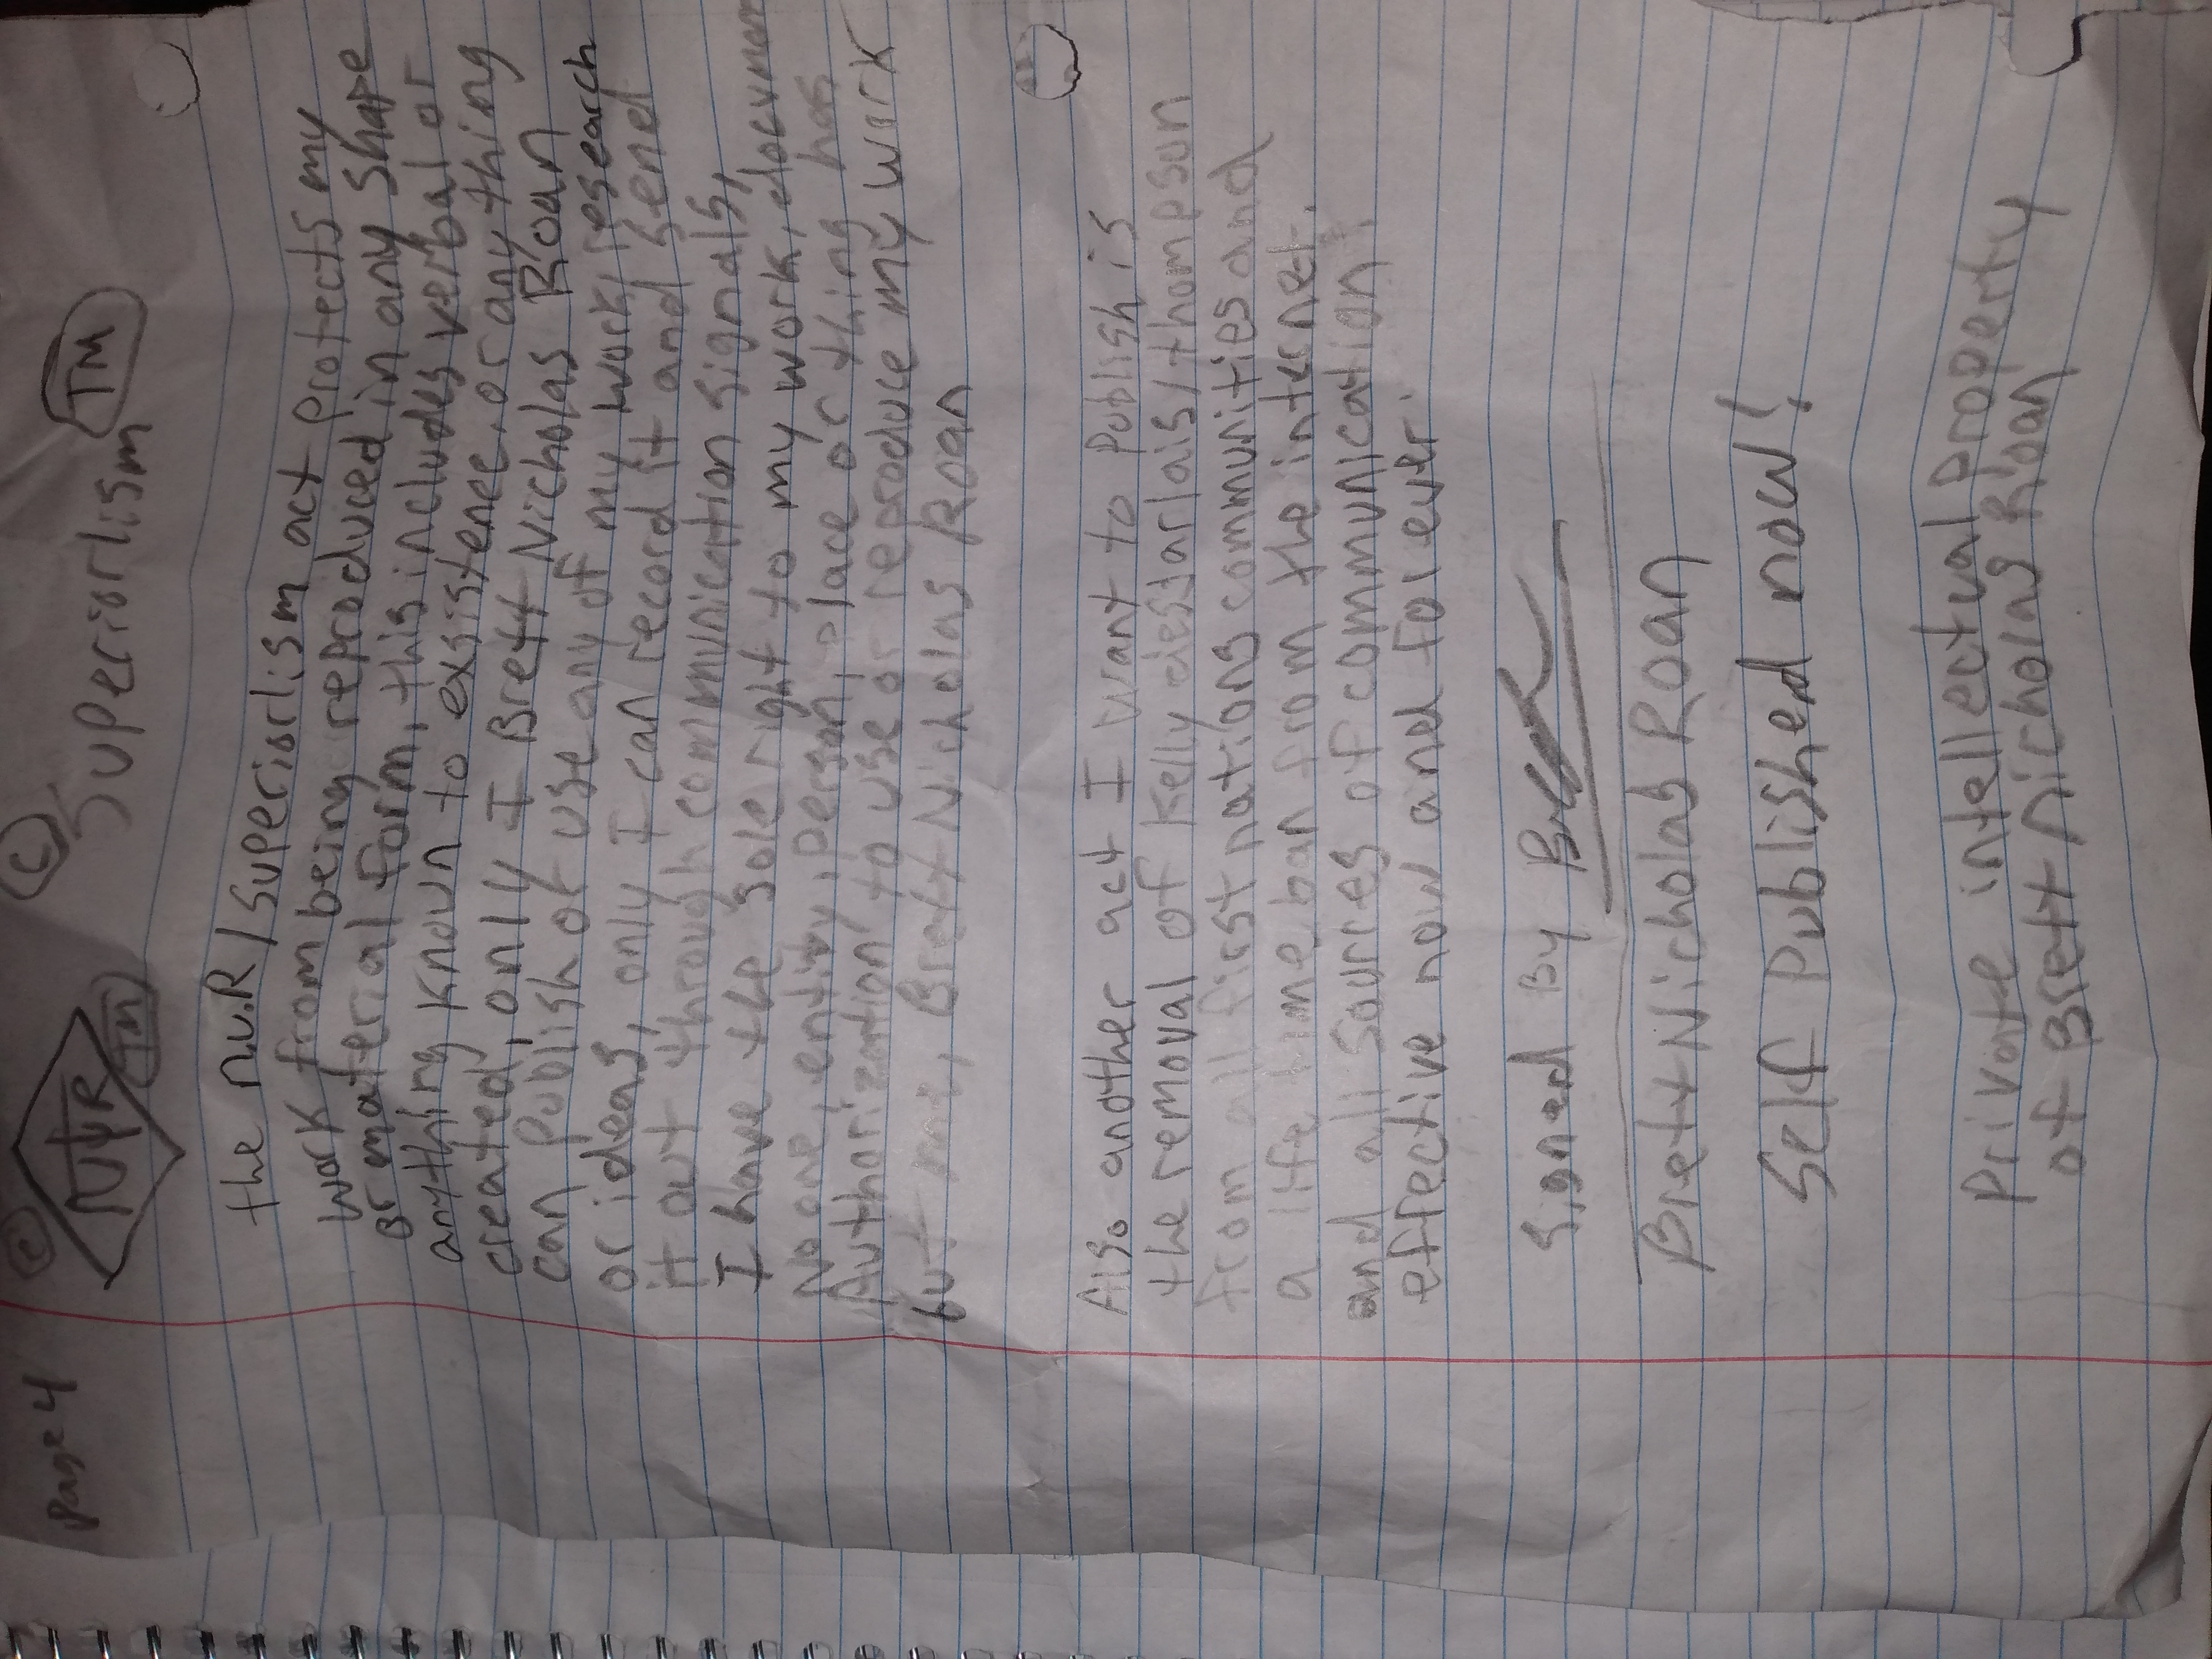 Page 4 © NΨR TM © Superiorlism TM
the n.u.R / Superiorlism act protects my
work from being reproduced in any shape
or material form, this includes verbal or
anything known to existence, or any thing
created, only I Brett Nicholas Roan
can publish or use any of my work, research
or ideas, only I can record it and send
it out through communication signals,
I have the sole right to my work, documen
No one, entity, person, place or thing has
Authorization to use or reproduce my work
but me, Brett Nicholas Roan
Also another act I want to publish is
the removal of Kelly desjarlais/thompson
from all first nations communities and
a life time ban from the internet.
and all sources of communication.
effective now and forever.
Signed By
Brett Nicholas Roan
Self Published now!
Private intellectual property
of Brett Nicholas Roan